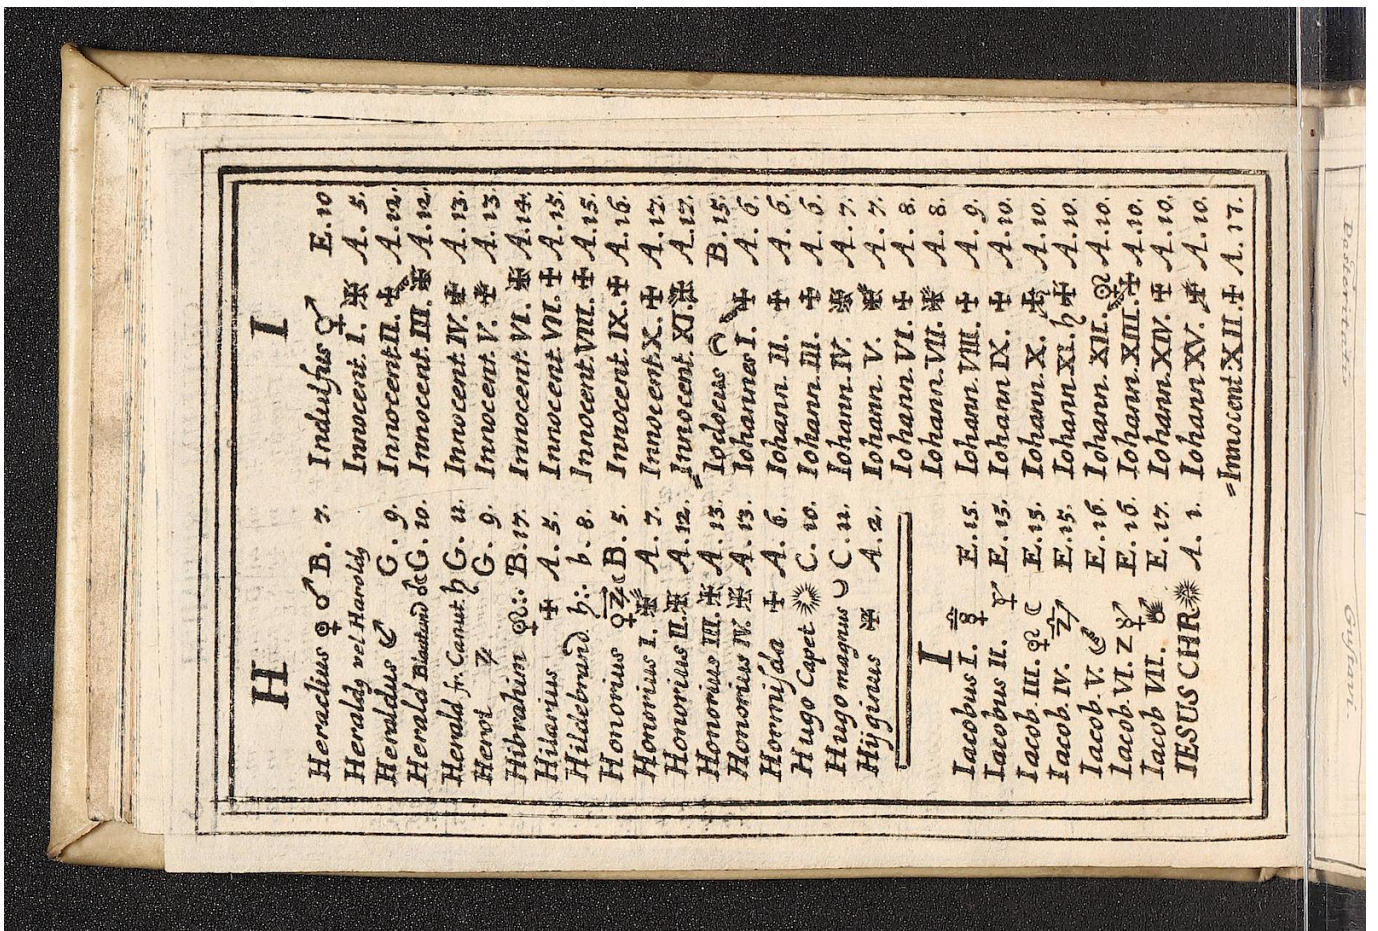 H
Heraclius B. 7.
Heraldg vel Haroldg
Heraldus G. 9.
Herald Blaatand G. 10.
Herald fr. Canut. G. 11.
Herot G. 9.
Hibrahim B. 17.
Hilarius A. 5.
Hildebrand b. 8.
Honorius B. 5.
Honorius I. A. 7.
Honorius II. A. 12.
Honorius III. A. 13.
Honorius IV. A. 13.
Hormisda A. 6.
Hugo Capet C. 10.
Hugo magnus C. 11.
Hyginus A. 2.
I
Iacobus I. E. 15.
Iacobus II. E. 15.
Iacob. III. E. 15.
Iacob. IV. E. 15.
Iacob. V. E. 16
Iacob. VI. E. 16.
Iacob VII. E. 17.
IESUS CHR A. 1.
I
Indulfus E. 10
Innocent. I. A. 5.
Innocent. II. A. 12.
Innocent. III. A. 12.
Innocent. IV. A. 13.
Innocent. V. A. 13.
Innocent. VI. A. 14.
Innocent. VII. A. 15.
Innocent. VIII. A. 15.
Innocent. IX. A. 16.
Innocent. X. A. 17.
Innocent. XI. A. 17.
Iodocus B. 15.
Iohannes I. A. 6.
Iohann. II. A. 6.
Iohann. III. A. 6.
Iohann. IV. A. 7.
Iohann. V. A. 7.
Iohann. VI. A. 8.
Iohann. VII. A. 8.
Iohann. VIII. A. 9.
Iohann IX. A. 10.
Iohann. X. A. 10.
Iohann XI. A. 10.
Iohann. XII. A. 10.
Iohann. XIII. A. 10.
Iohann XIV. A. 10.
Iohann XV. A. 10.
=Innocent XII. A. 17.
Posteritatis
Gustavi.